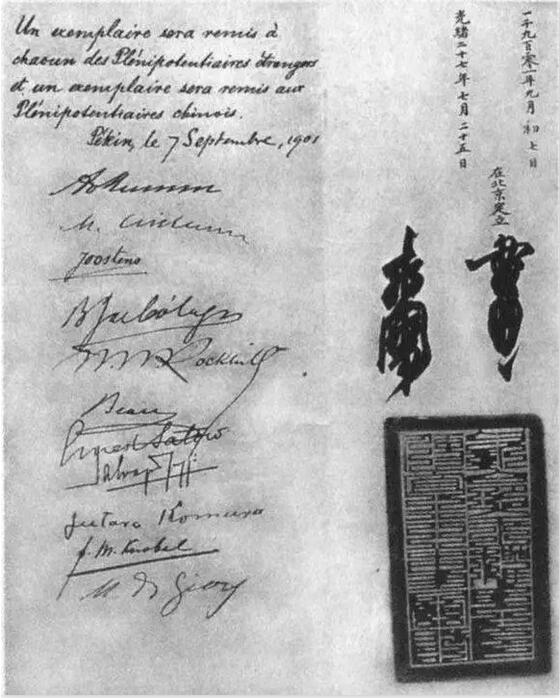 Un exemplaire sera remis à
chacun des Plénipotentiaires étrangers
et un exemplaire sera remis aux
Plénipotentiaires chinois.
Pékin, le 7 Septembre, 1901
A Mumm
M. Czikann
Joostens
B J de Cólogan
W. W. Rockhill
Beau
Ernest Satow
Salvago
Jutaro Komura
F. M. Knobel
M de Giers
一千九百零一年九月初七日
在北京定立
光緒二十七年七月二十五日